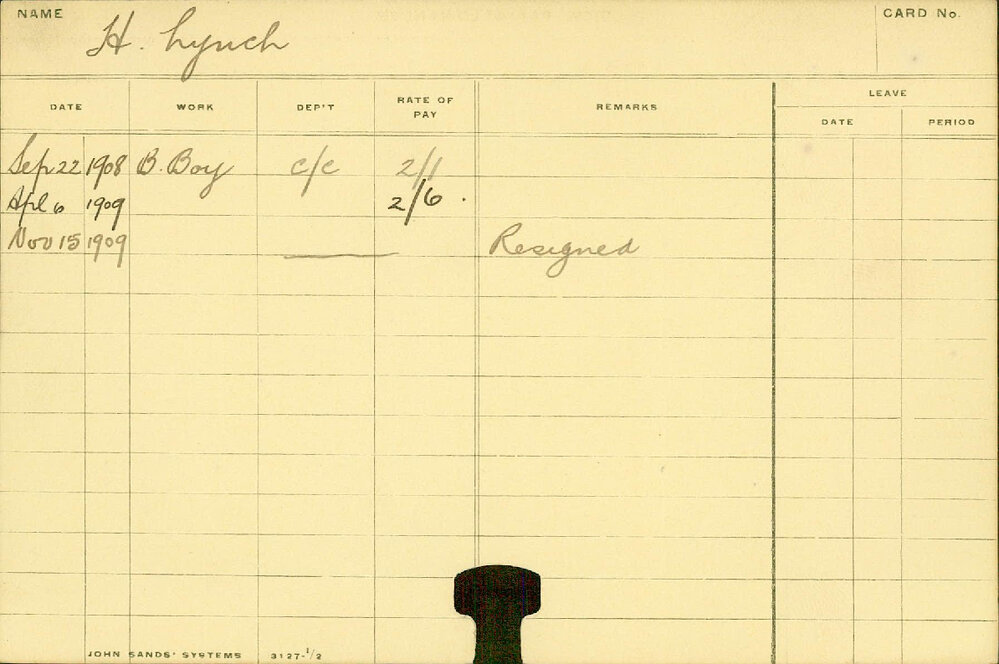 NAME H. Lynch CARD No.
DATE WORK DEP'T RATE OF PAY REMARKS LEAVE
DATE PERIOD
Sep 22 1908 B. Boy c/c 2/1
Apl 6 1909 2/6 .
Nov 15 1909 Resigned
JOHN SANDS' SYSTEMS 3127-1/2